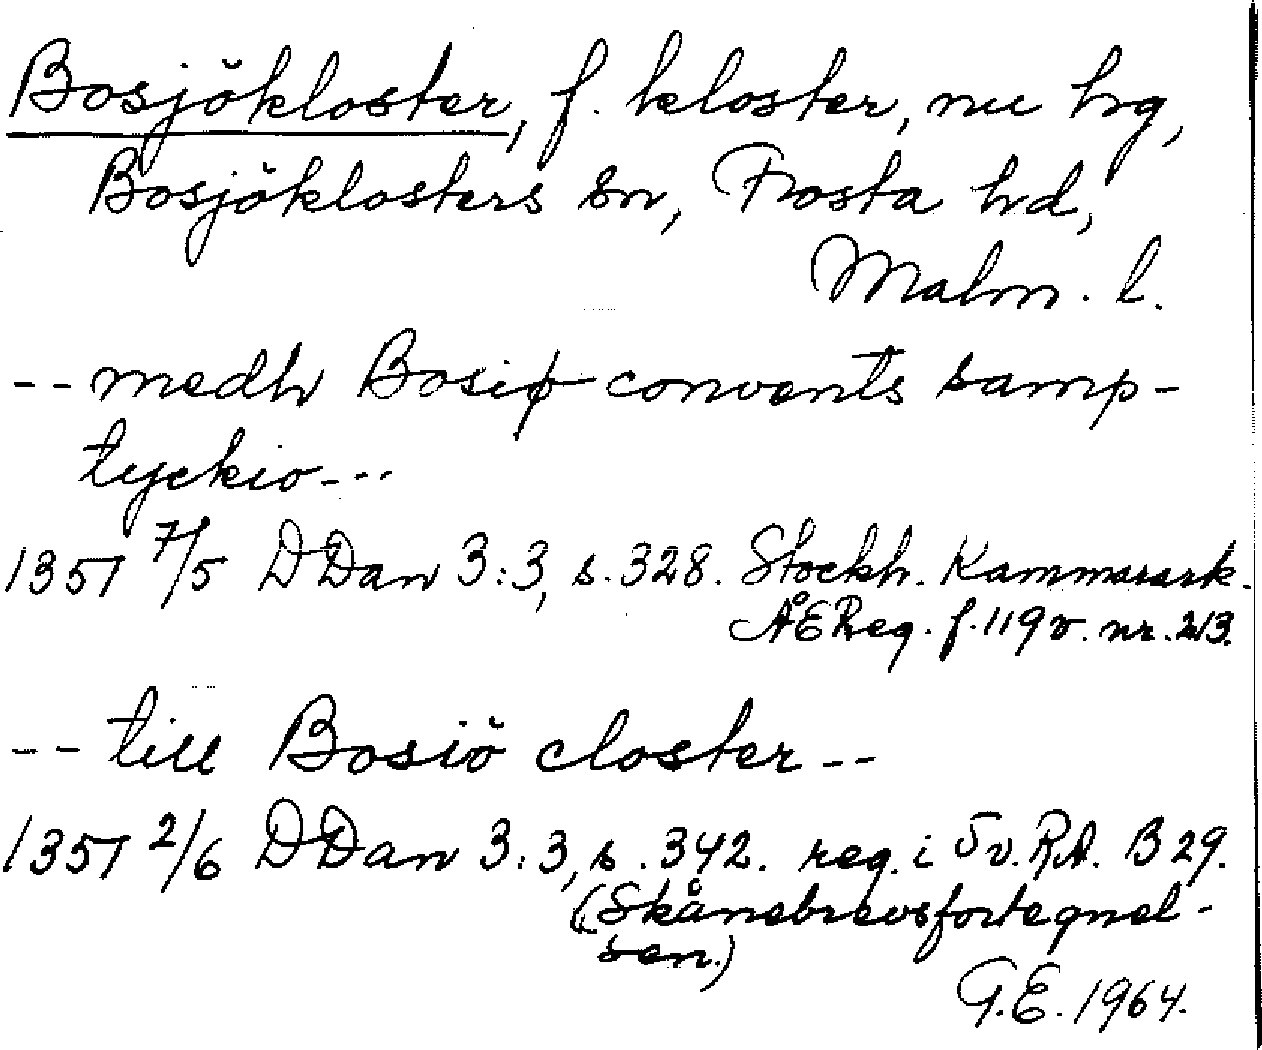 Bosjökloster, f. kloster, nu hrg,
Bosjöklosters sn, Frosta hd,
Malm. l.
-- medh Bosiø convents samp-
tyckio ---
1351 7/5 DDan 3:3, s. 328. Stockh. Kammarark.
ÅEReg. f. 119 v. nr. 213.
-- till Bosiö closter --
1351 2/6 DDan 3:3, s. 342. reg. i Sv. RA. B 29.
(Skånebrevsfortegnel-
sen.)
G.E. 1964.